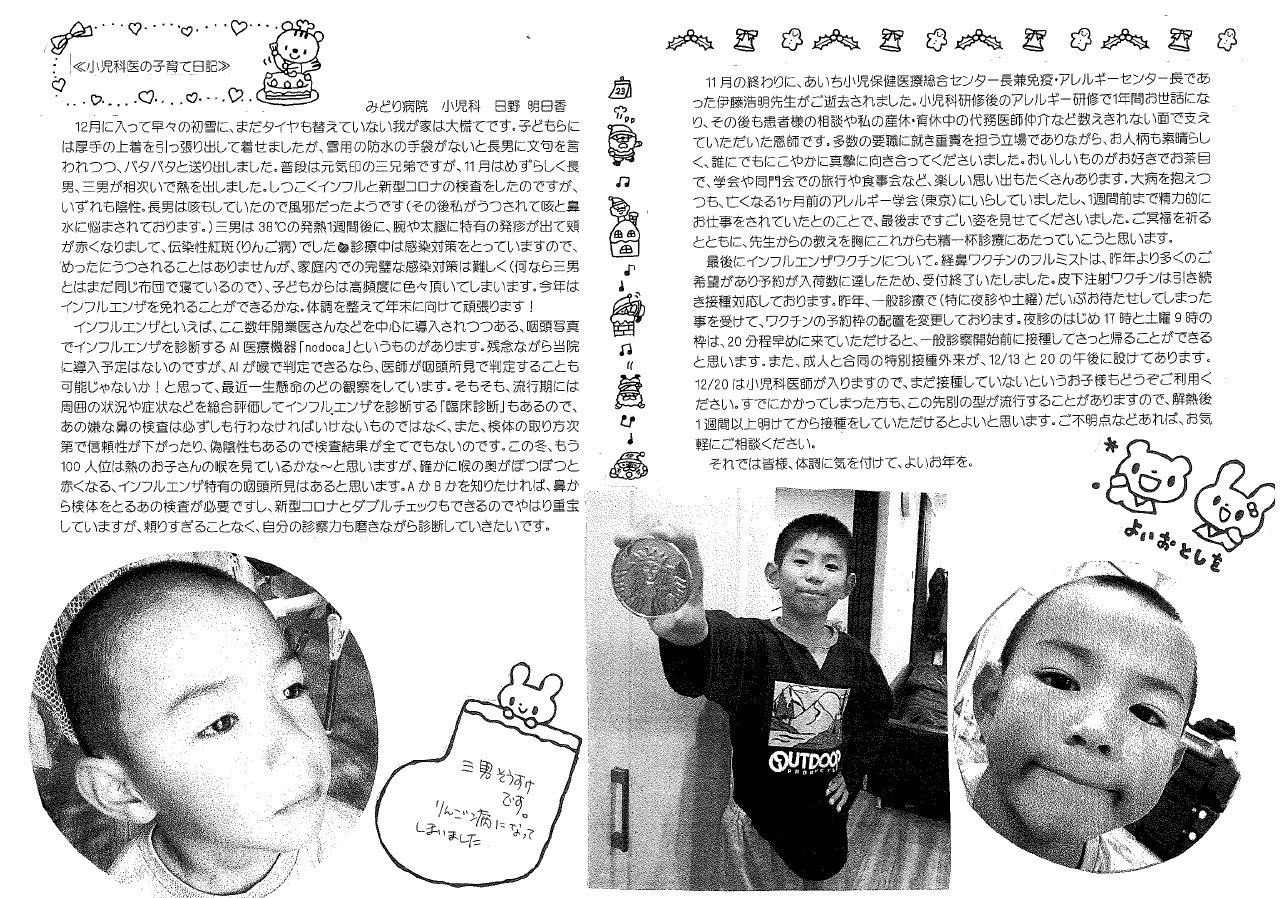 ≪小児科医の子育て日記≫
みどり病院 小児科 日野 明日香
12月に入って早々の初雪に、まだタイヤも替えていない我が家は大慌てです。子どもらに
は厚手の上着を引っ張り出して着せましたが、雪用の防水の手袋がないと長男に文句を言
われつつ、バタバタと送り出しました。普段は元気印の三兄弟ですが、11月はめずらしく長
男、三男が相次いで熱を出しました。しつこくインフルと新型コロナの検査をしたのですが、
いずれも陰性。長男は咳もしていたので風邪だったようです(その後私がうつされて咳と鼻
水に悩まされております。)三男は38℃の発熱1週間後に、腕や太腿に特有の発疹が出て頬
が赤くなりまして、伝染性紅斑(りんご病)でした診療中は感染対策をとっていますので、
めったにうつされることはありませんが、家庭内での完璧な感染対策は難しく(何なら三男
とはまだ同じ布団で寝ているので)、子どもからは高頻度に色々頂いてしまいます。今年は
インフルエンザを免れることができるかな。体調を整えて年末に向けて頑張ります!
インフルエンザといえば、ここ数年開業医さんなどを中心に導入されつつある、咽頭写真
でインフルエンザを診断するAI医療機器「nodoca」というものがあります。残念ながら当院
に導入予定はないのですが、AIが喉で判定できるなら、医師が咽頭所見で判定することも
可能じゃないか!と思って、最近一生懸命のどの観察をしています。そもそも、流行期には
周囲の状況や症状などを総合評価してインフルエンザを診断する「臨床診断」もあるので、
あの嫌な鼻の検査は必ずしも行わなければいけないものではなく、また、検体の取り方次
第で信頼性が下がったり、偽陰性もあるので検査結果が全てでもないのです。この冬、もう
100人位は熱のお子さんの喉を見ているかな～と思いますが、確かに喉の奥がぽつぽつと
赤くなる、インフルエンザ特有の咽頭所見はあると思います。AかBかを知りたければ、鼻か
ら検体をとるあの検査が必要ですし、新型コロナとダブルチェックもできるのでやはり重宝
していますが、頼りすぎることなく、自分の診察力も磨きながら診断していきたいです。
三男そうすけ
です。
りんご病になって
しまいました
23
11月の終わりに、あいち小児保健医療総合センター長兼免疫・アレルギーセンター長であ
った伊藤浩明先生がご逝去されました。小児科研修後のアレルギー研修で1年間お世話にな
り、その後も患者様の相談や私の産休・育休中の代務医師仲介など数えきれない面で支え
ていただいた恩師です。多数の要職に就き重責を担う立場でありながら、お人柄も素晴らし
く、誰にでもにこやかに真摯に向き合ってくださいました。おいしいものがお好きでお茶目
で、学会や同門会での旅行や食事会など、楽しい思い出もたくさんあります。大病を抱えつ
つも、亡くなる1ヶ月前のアレルギー学会(東京)にいらしていましたし、1週間前まで精力的に
お仕事をされていたとのことで、最後まですごい姿を見せてくださいました。ご冥福を祈る
とともに、先生からの教えを胸にこれからも精一杯診療にあたっていこうと思います。
最後にインフルエンザワクチンについて。経鼻ワクチンのフルミストは、昨年より多くのご
希望があり予約が入荷数に達したため、受付終了いたしました。皮下注射ワクチンは引き続
き接種対応しております。昨年、一般診療で(特に夜診や土曜)だいぶお待たせしてしまった
事を受けて、ワクチンの予約枠の配置を変更しております。夜診のはじめ17時と土曜9時の
枠は、20分程早めに来ていただけると、一般診察開始前に接種してさっと帰ることができる
と思います。また、成人と合同の特別接種外来が、12/13と20の午後に設けてあります。
12/20は小児科医師が入りますので、まだ接種していないというお子様もどうぞご利用く
ださい。すでにかかってしまった方も、この先別の型が流行することがありますので、解熱後
1週間以上明けてから接種をしていただけるとよいと思います。ご不明点などあれば、お気
軽にご相談ください。
それでは皆様、体調に気を付けて、よいお年を。
よいおとしを
OUTDOOR
PRODUCTS